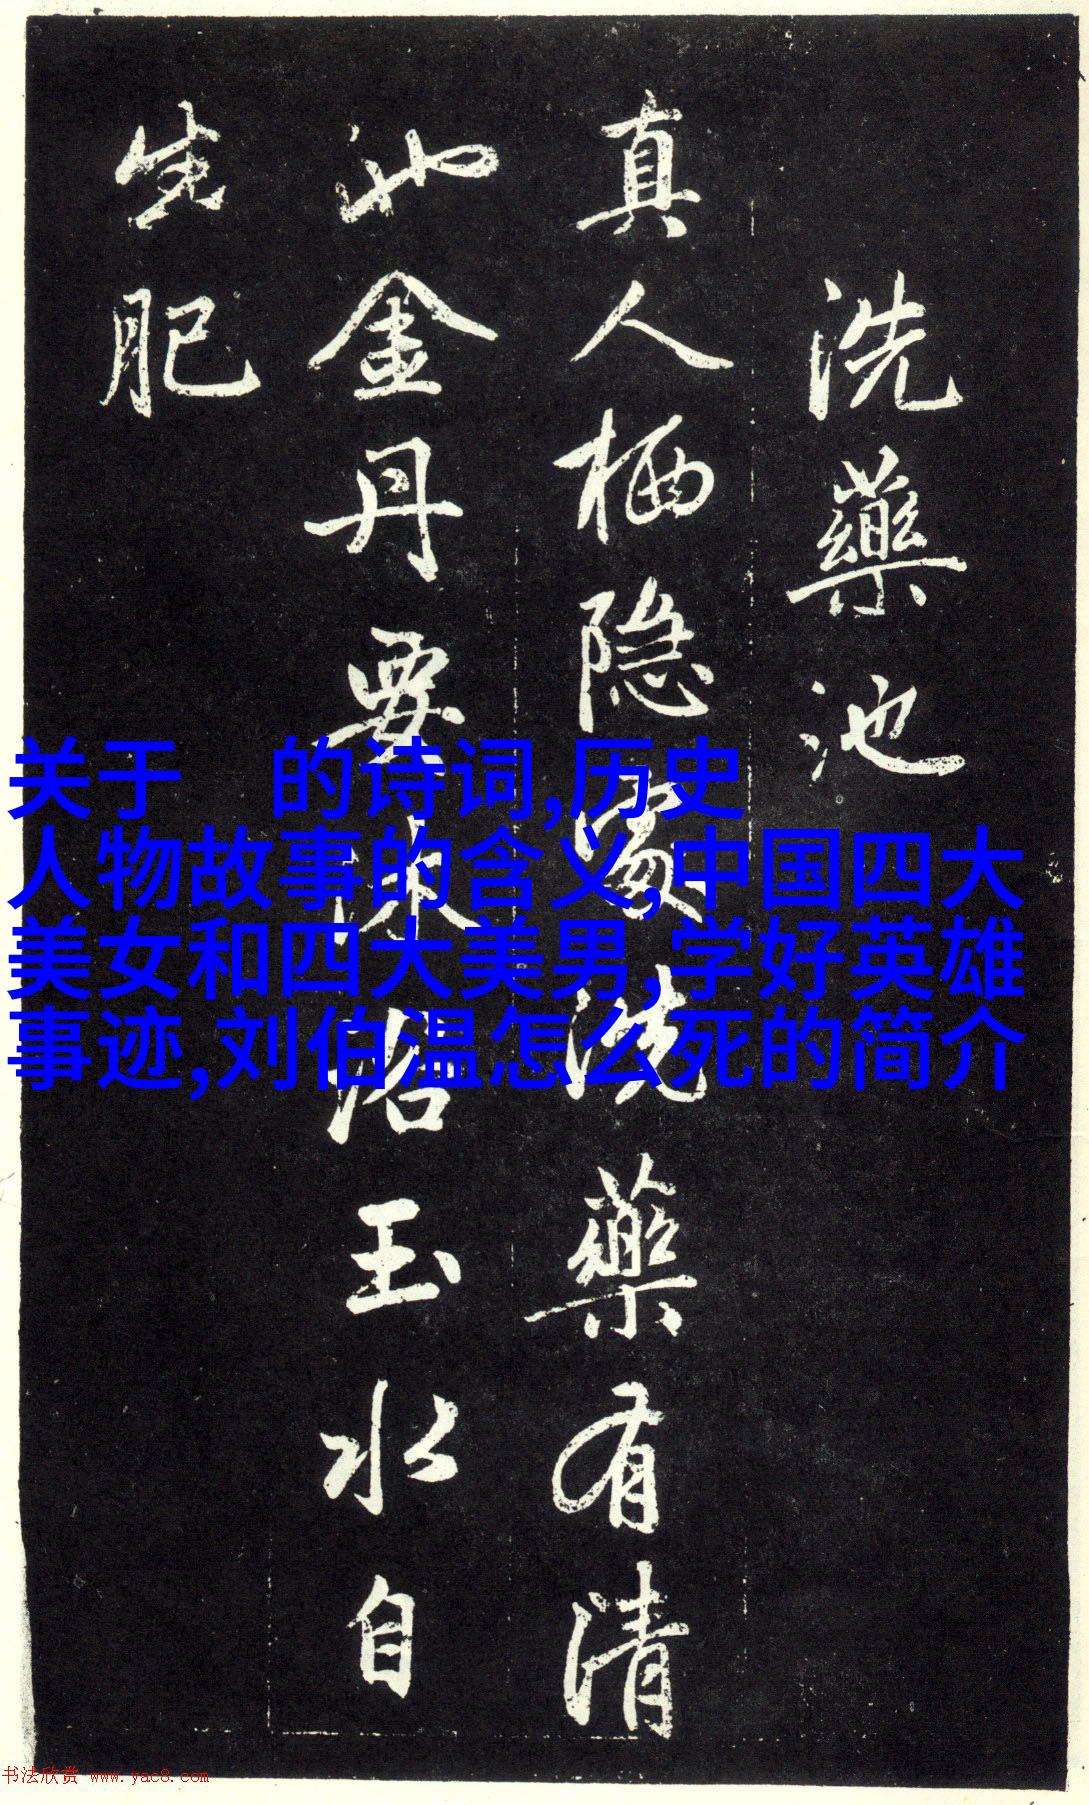 洗藥池
真人栖隐處洗藥有清
池金丹要沐浴玉水自
生肥
关于 的诗词,历史
人物故事的含义,中国四大
美女和四大美男,学好英雄
事迹,刘伯温怎么死的简介
书法欣赏 www.yac8.com